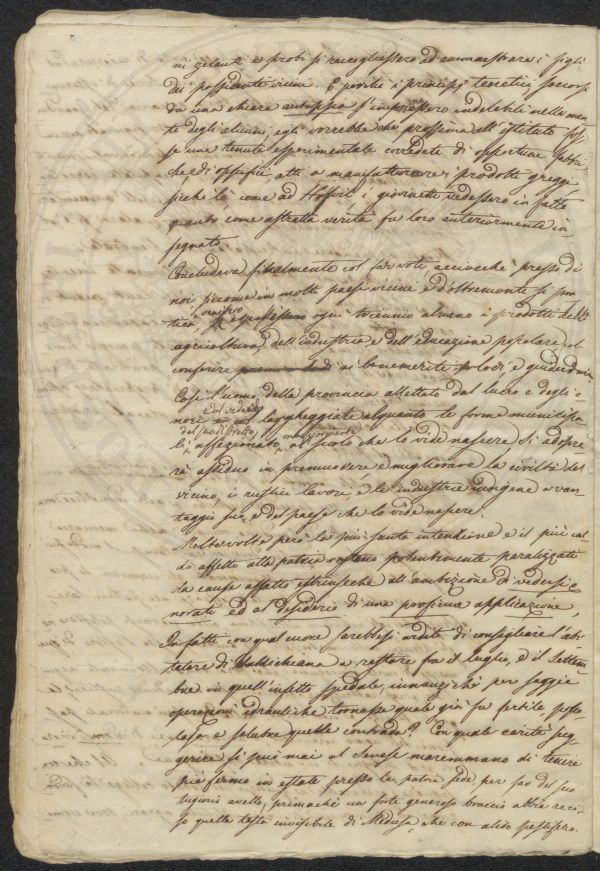 ni zelante e probi si raccogliessero ad ammaestrare i figli
dei possidenti vicini. E perchè i principj teoretici soccorsi
da una chiara autopsia s'imprimessero indelebili nelle men
te degli alunni, egli vorrebbe che prossima all'istituto fos
se una tenuta esperimentale corredata di opportune fabbri
che, e di opificii atti a manifatturare i prodotti greggi
sicchè là come ad Hofwil, i giovinetti vedessero in fatto
quanto come astratta verità fu loro anteriormente in
segnato.
Concludeva finalmente col far voti, acciocchè presso di
noi siccome in molti paesi vicini e d'oltremonte si pra
tica, venissero ogni triennio almeno i prodotti dell'
agricoltura, dell'industria e dell'educazione popolare col
conferire ai benemeriti lodi e guiderdoni
Così l'uomo della provincia allettato dal lucro e degli o
nori e dal vedere
laggheggiate alquanto le forme municipa
li, affezionato al suolo che lo vide nascere si adopre
rà assiduo in promuovere e migliorare la civiltà del
vicino, i rustici lavori, e le industrie indigene a van
taggio suo, e del paese che lo vide nascere.
Moltevolte però la più santa intenzione e il più cal
do affetto alla patria restano potentemente paralizzati
da cause affatto estrinseche all'ambizione di vedersi o
norati ed al desiderio di una proficua applicazione.
In fatti con qual cuore sarebbesi ardito di consigliare l'abi
tatore di Valdichiana a restare fra il luglio, e il Settem
bre in quell'infetto spedale, innanzichè per saggie
operazioni idrauliche tornasse quale già fu fertile, popo
losa e salubre quella contrada? Con quale carità sug
gerire si può mai al Senese maremmano di tenere
piè fermo in estate presso la patria sede, per
tugurio avello, primachè un forte generoso braccio abbia reci
so quella testa invisibile di Medusa, che con alito pestifero